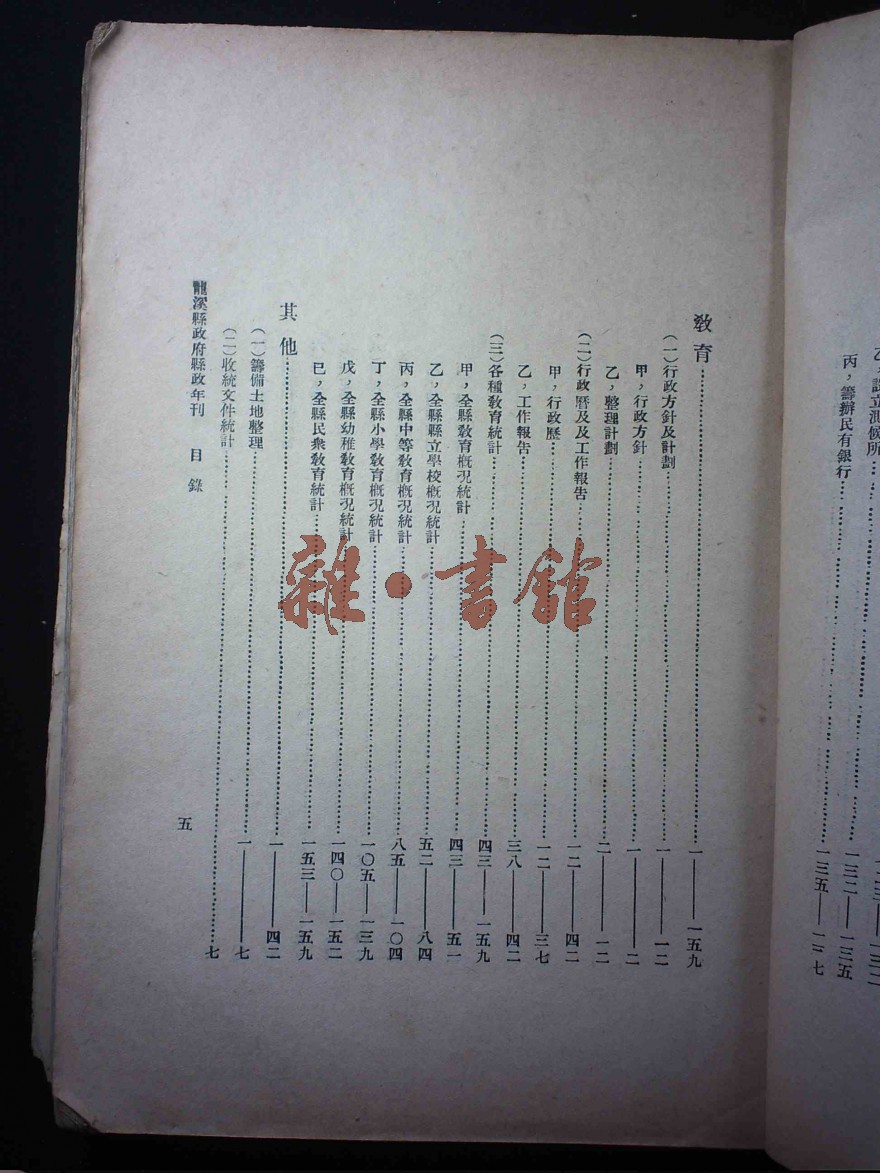 乙，設立測候所……一三三——一三二
丙，籌辦民有銀行……一三二——一三五
一三五——一三七
教育……一——一五九
（一）行政方針及計劃……一——一二
甲，行政方針……一——二
乙，整理計劃……二——一二
（二）行政曆及及工作報告……一二——四二
甲，行政歷……一二——三七
乙，工作報告……三八——四二
（三）各種教育統計……四三——一五九
甲，全縣教育概况統計……四三——五一
乙，全縣縣立學校概况統計……五二——八四
丙，全縣中等教育概况統計……八五——一〇四
丁，全縣小學教育概况統計……一〇五——一三九
戊，全縣幼稚教育概况統計……一四〇——一五二
已，全縣民衆教育統計……一五三——一五九
其他……一——四二
（一）籌備土地整理……一——七
（二）收統文件統計……七
龍溪縣政府縣政年刊　目錄
五
雜·書館